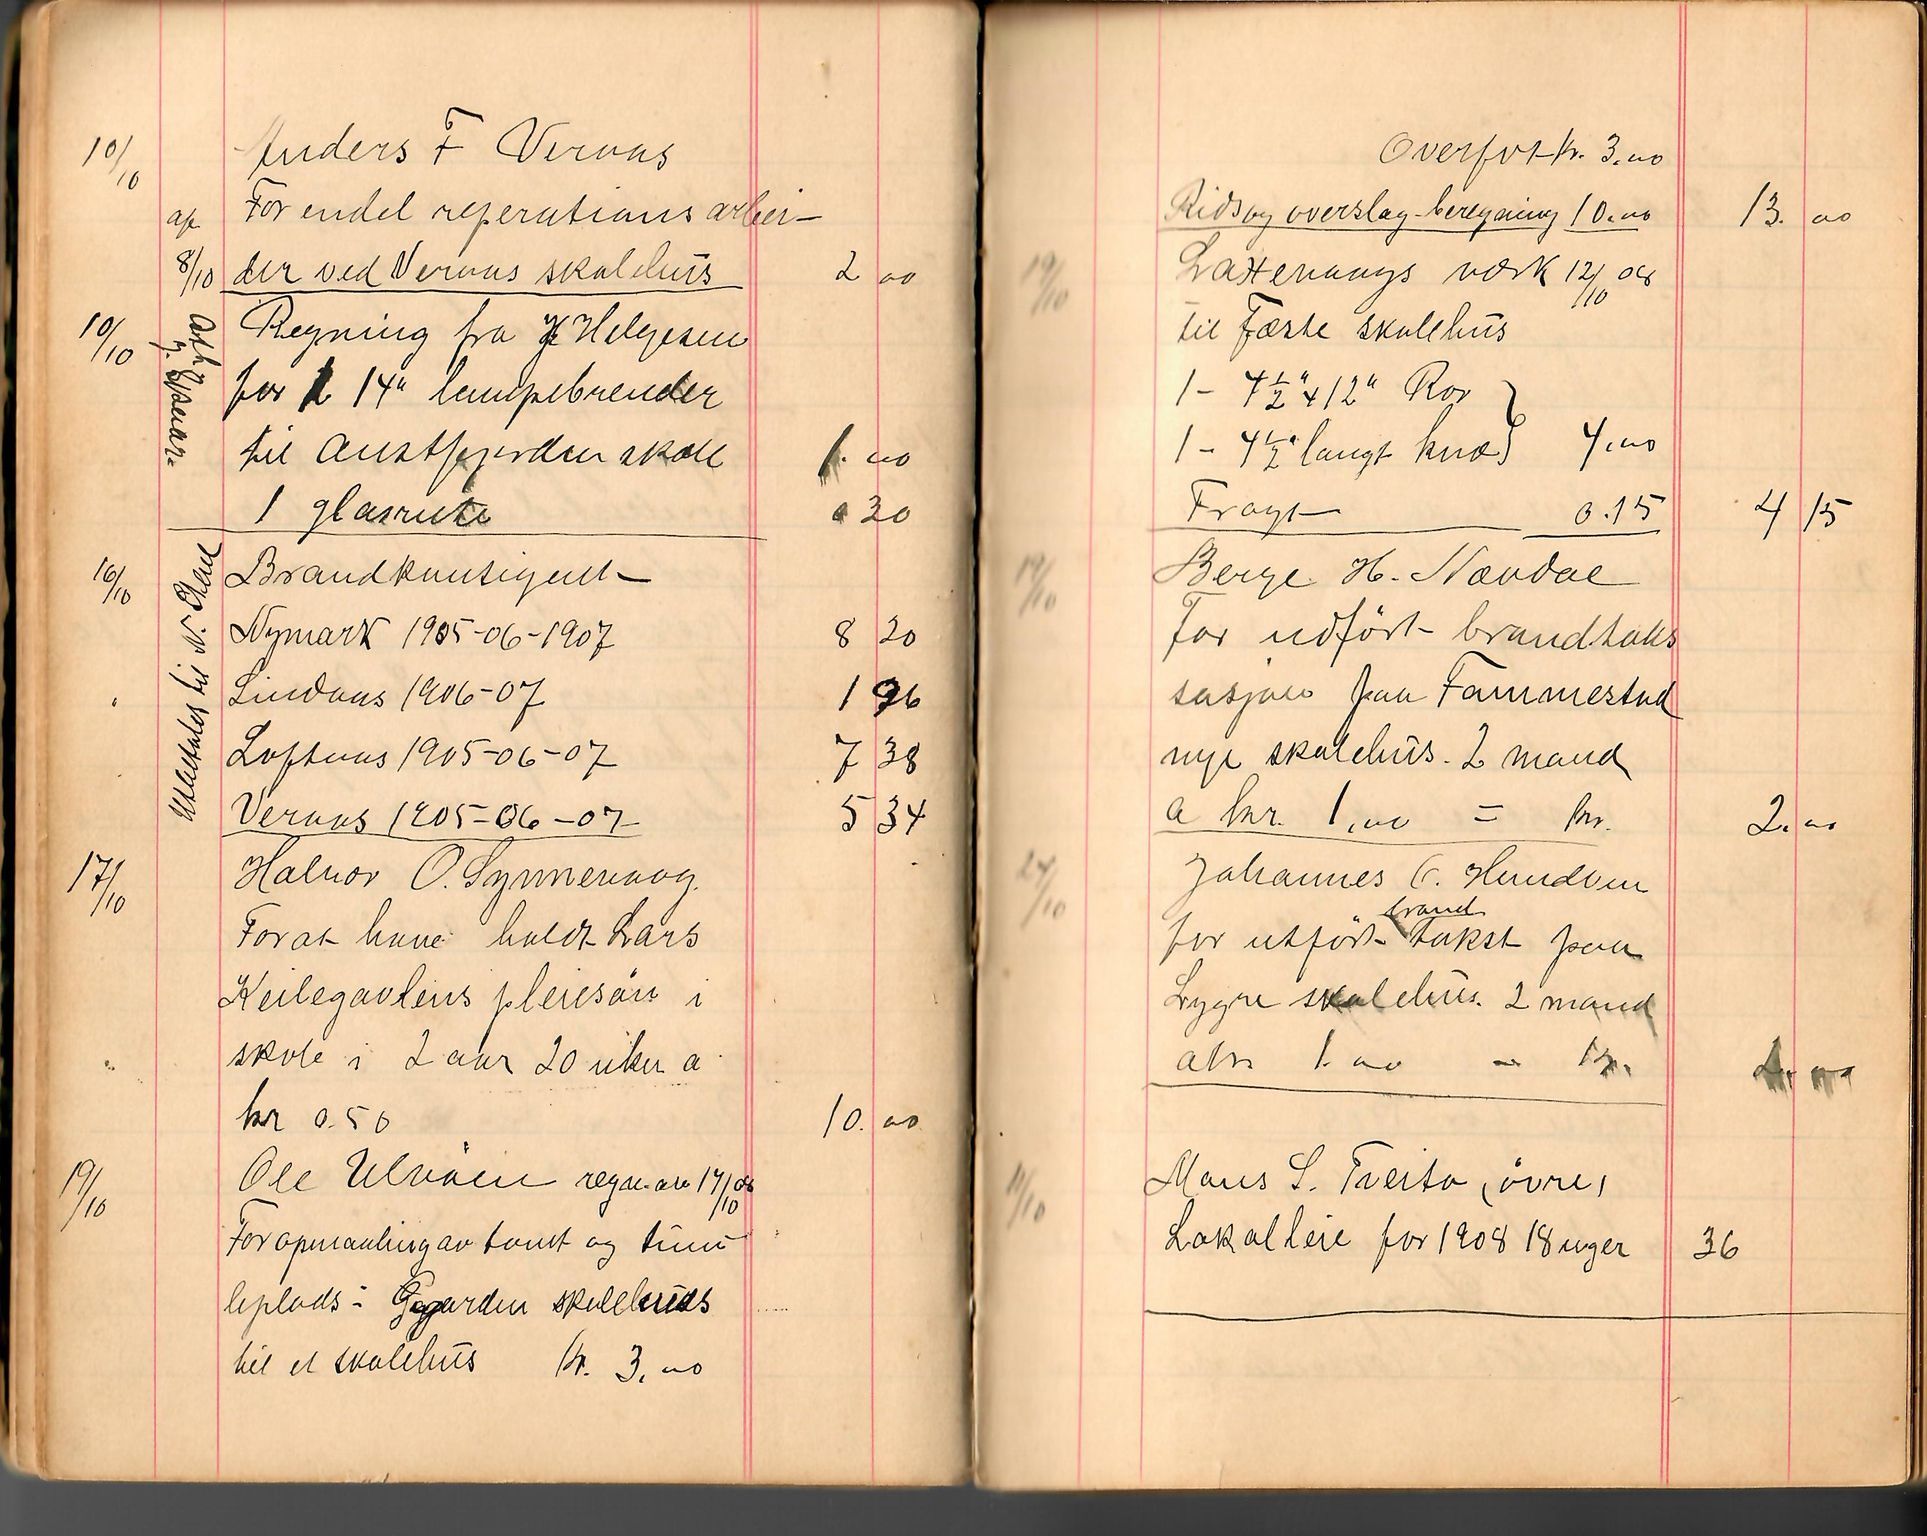 10/10 Anders F Vervas
For endel reperations arbei-
af 8/10 der ved Vervas skolehus 2 00
10/10 Regning fra Helgesen
for 14" lampebrender
til Austfjorden skole 1. 00
1 glasrute 0 30
16/10 Brandkontigent
til N.
Nymark 1905-06-1907 8 20
Lindaas 1906-07 1 96
Loftaas 1905-06-07 7 38
Vervas 1905-06-07 5 34
17/10 Halvor O. Synnevaag.
For at have holdt Lars
Keilegavlens pleiesøn i
skole i 2 aar 20 uker a
kr 0.50 10. 00
19/10 Ole Ulvøen regn. av 17/10 08
For opmaaling av tomt og tum-
leplads i skolehus
til et skolehus kr. 3.00
Overført kr. 3.00
Rids og overslag-beregning 10.00 13. 00
19/10 Laxevaags værk 12/10 08
til Fæste skolehus
1 - 4½" x 12" Rør
1 - 4½" langt knæ } 4.00
Fragt 0.15 4 15
19/10 Berge H. Nævdal
For udført brandtaks
sasjon paa Fammestad
nye skolehus. 2 mand
a kr. 1.00 = kr. 2. 00
24/10 Johannes Hundven
for utført brand takst paa
Lygre skolehus. 2 mand
a kr. 1.00 = kr. 2. 00
11/10 Mons S. Tveito (øvre)
Lokalleie for 1908 18 uger 36